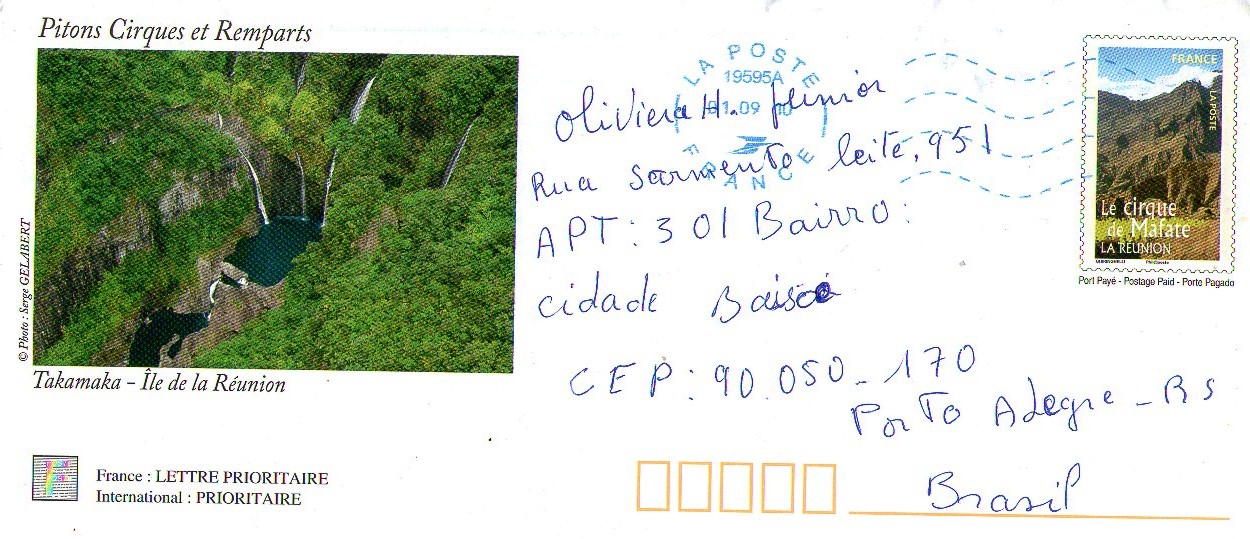 Pitons Cirques et Remparts
© Photo : Serge GELABERT
Takamaka - Île de la Réunion
France : LETTRE PRIORITAIRE
International : PRIORITAIRE
LA POSTE
19595A
01.09 10
FRANCE
Oliviera H. junior
Rua Sarmento leite, 951
APT : 301 Bairro :
cidade Baisce
CEP : 90.050-170
Porto Alegre - RS
Brasil
FRANCE
LA POSTE
Le cirque
de Mafate
LA RÉUNION
Port Payé - Postage Paid - Porte Pagado